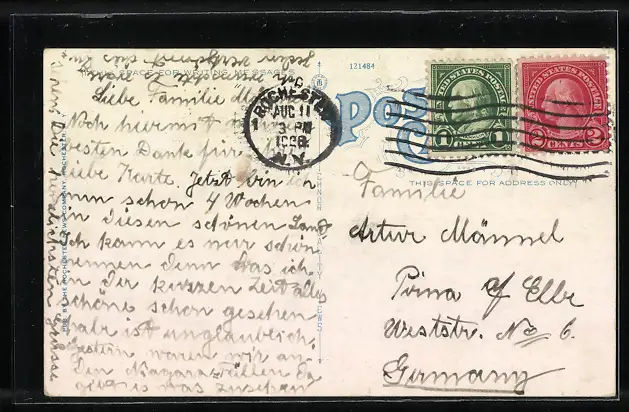 121484
THIS SPACE FOR WRITING MESSAGES
POS
UNITED STATES POSTAGE
1 1
UNITED STATES POSTAGE
2 CENTS 2
ROCHESTER
AUG 11
3-PM
N.Y.
THIS SPACE FOR ADDRESS ONLY
Liebe Familie
Noch hiermit
besten Dank für
liebe Karte. Jetzt bin ich
nun schon 4 Wochen
in diesen schönen Land
Ich kann es nur schön
nennen denn was ich
in der kurzen Zeit alles
schöne schon gesehen
habe ist unglaublich.
Gestern waren wir an
den Niagara-Fällen Da
gab es was zu sehen
Familie
Artur Männel
Pirna a/ Elbe
Weststr. No 6.
Germany